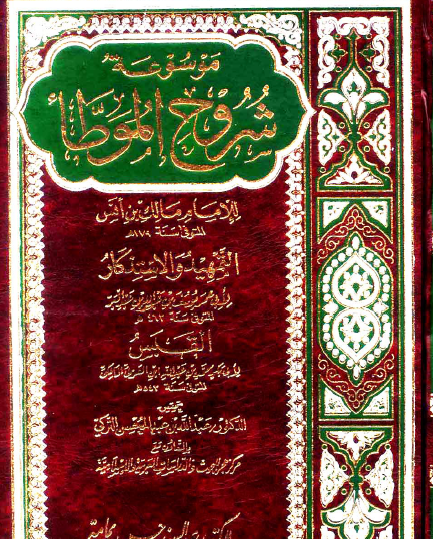 موسوعة
شروح الموطأ
للإمام مالك بن أنس
المتوفى سنة ١٧٩هـ
التمهيد والاستذكار
لأبي عمر يوسف بن عبد الله بن عبد البر
المتوفى سنة ٤٦٣ هـ
القبس
المتوفى سنة ٥٤٣هـ
تحقيق
الدكتور عبد الله بن عبد المحسن التركي
بالتعاون مع
مركز هجر للبحوث والدراسات العربية والإسلامية